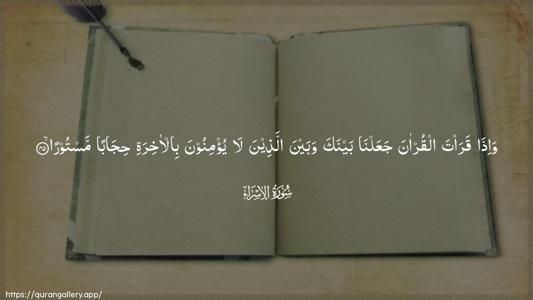 وَاِذَا قَرَاۡتَ الۡقُرۡاٰنَ جَعَلۡنَا بَيۡنَكَ وَبَيۡنَ الَّذِيۡنَ لَا يُؤۡمِنُوۡنَ بِالۡاٰخِرَةِ حِجَابًا مَّسۡتُوۡرًا ۙ‏﴿۴۵﴾
سُوۡرَةُ الۡاِسۡرَاۤءِ
https://qurangallery.app/